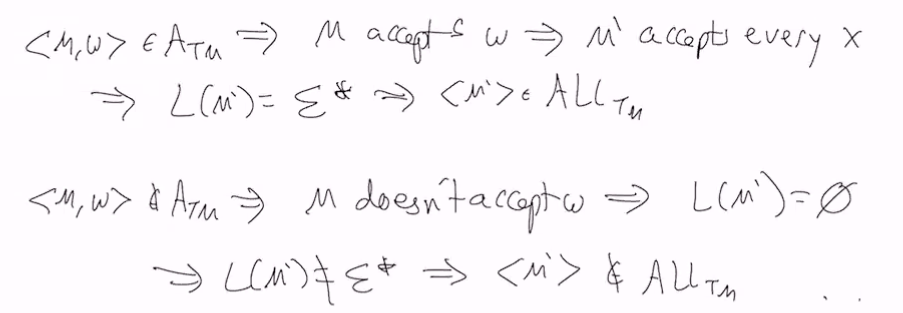 <M,w> ∈ A_TM ⇒ M accepts w ⇒ M' accepts every x
⇒ L(M') = Σ* ⇒ <M'> ∈ ALL_TM
<M,w> ∉ A_TM ⇒ M doesn't accept w ⇒ L(M') = ∅
⇒ L(M') ≠ Σ* ⇒ <M'> ∉ ALL_TM